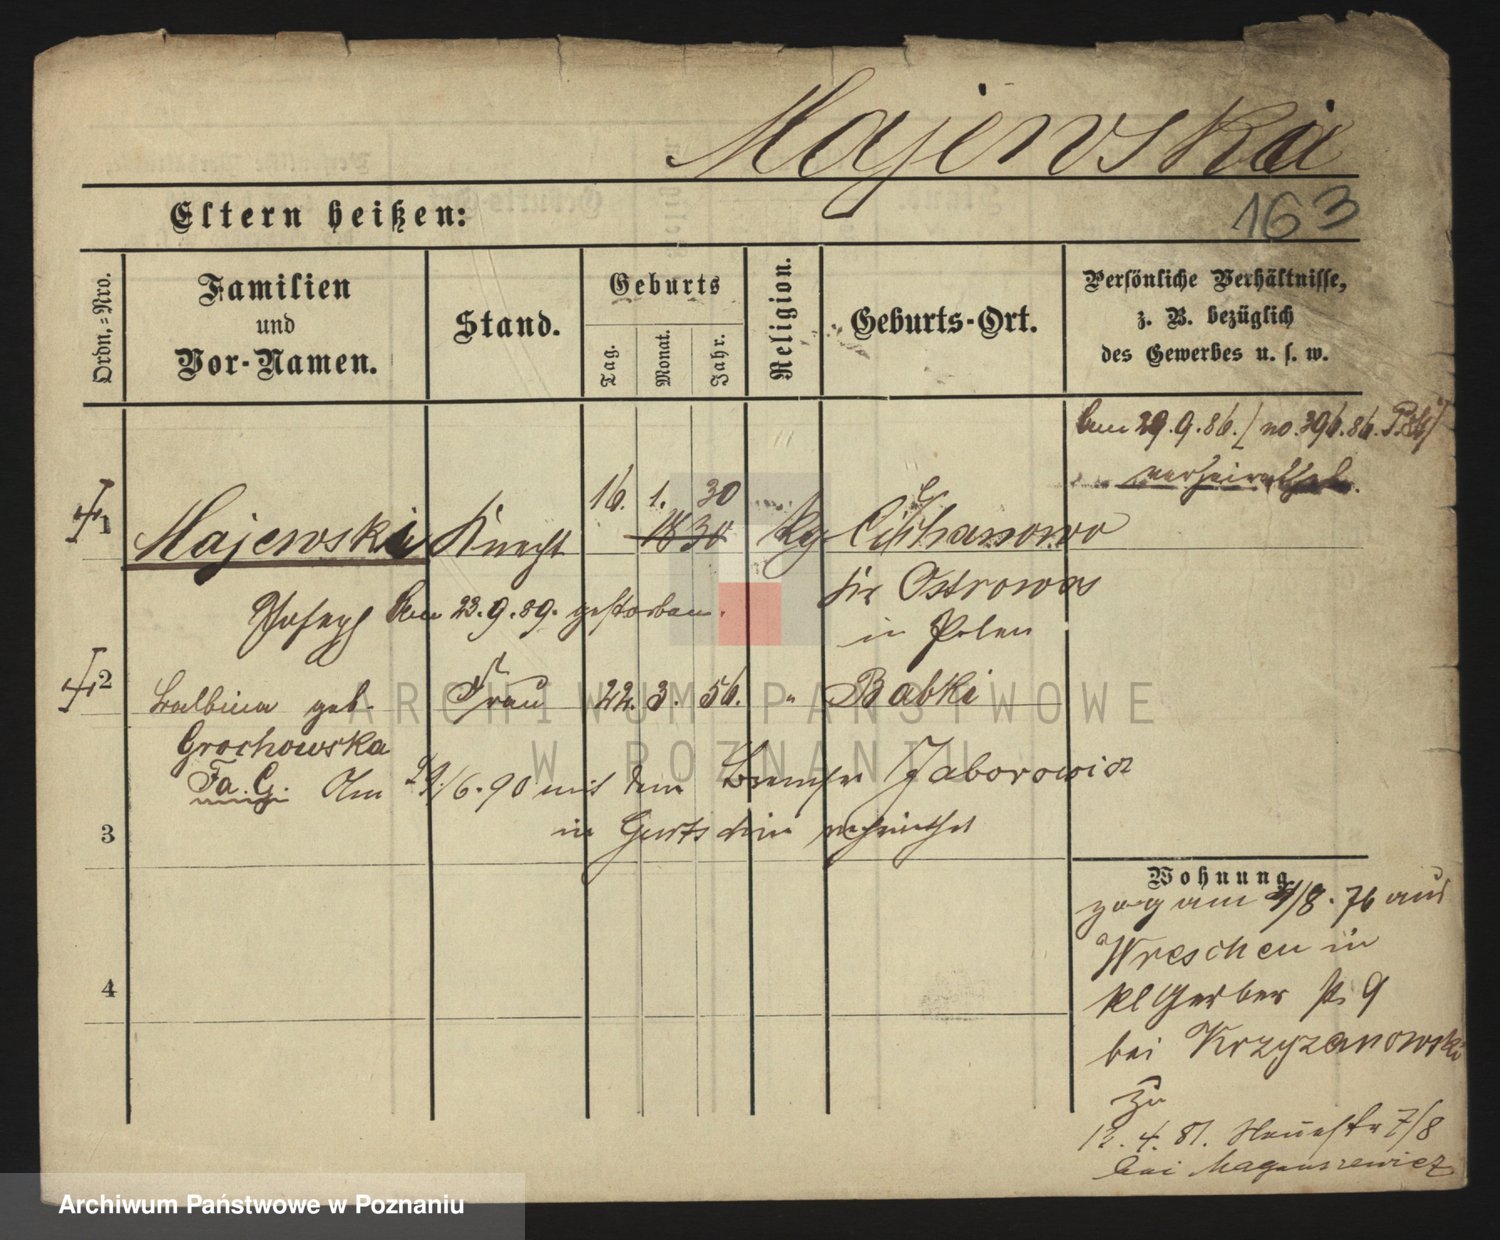 Majewski
163
Eltern heißen:
Ordn.=Nro.
Familien
und
Vor-Namen.
Stand.
Geburts
Tag.
Monat.
Jahr.
Religion.
Geburts-Ort.
Persönliche Verhältnisse,
z. B. bezüglich
des Gewerbes u. s. w.
Am 29.9.86. / no. 396.86.
verheirathet.
1
Majewski Knecht 16. 1. 30 1830
Ostrowo
in Polen
Joseph Am 23.9.89. gestorben.
2
Balbina geb. Frau 22. 3. 56. " Babki
Grochowska
Am 29/6.90 mit dem Jaborowicz
in
3
4
Wohnung
zog am 4/8.76 aus
Wreschen in
Kl Gerber 9
bei Krzyzanowski
zu
12.4.81. 7/8
bei
ARCHIWUM PAŃSTWOWE
W POZNANIU
Archiwum Państwowe w Poznaniu